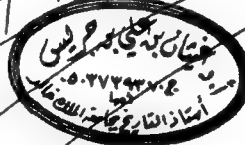 غيثان بن علي بن جريس
ج ٠٥٠٣٧٣٩٣٧٠
أستاذ التاريخ بجامعة الملك خالد